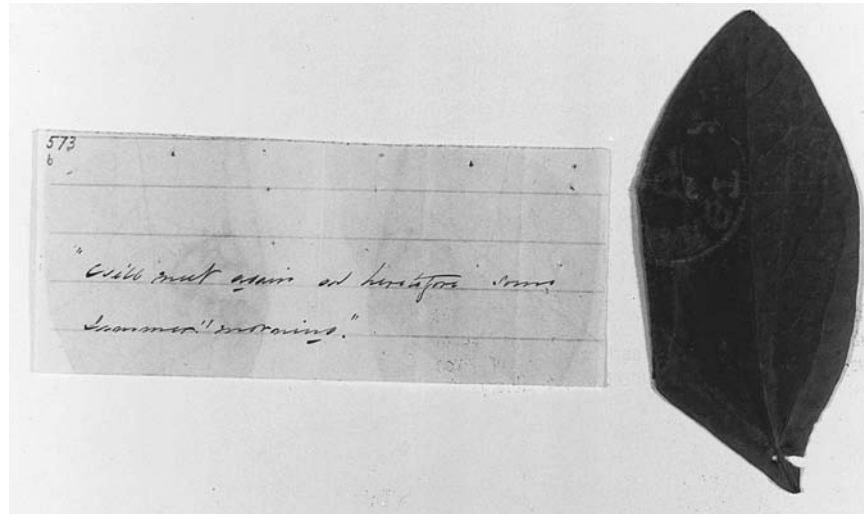 573
b
"Will meet again as heretofore some
summer's morning."